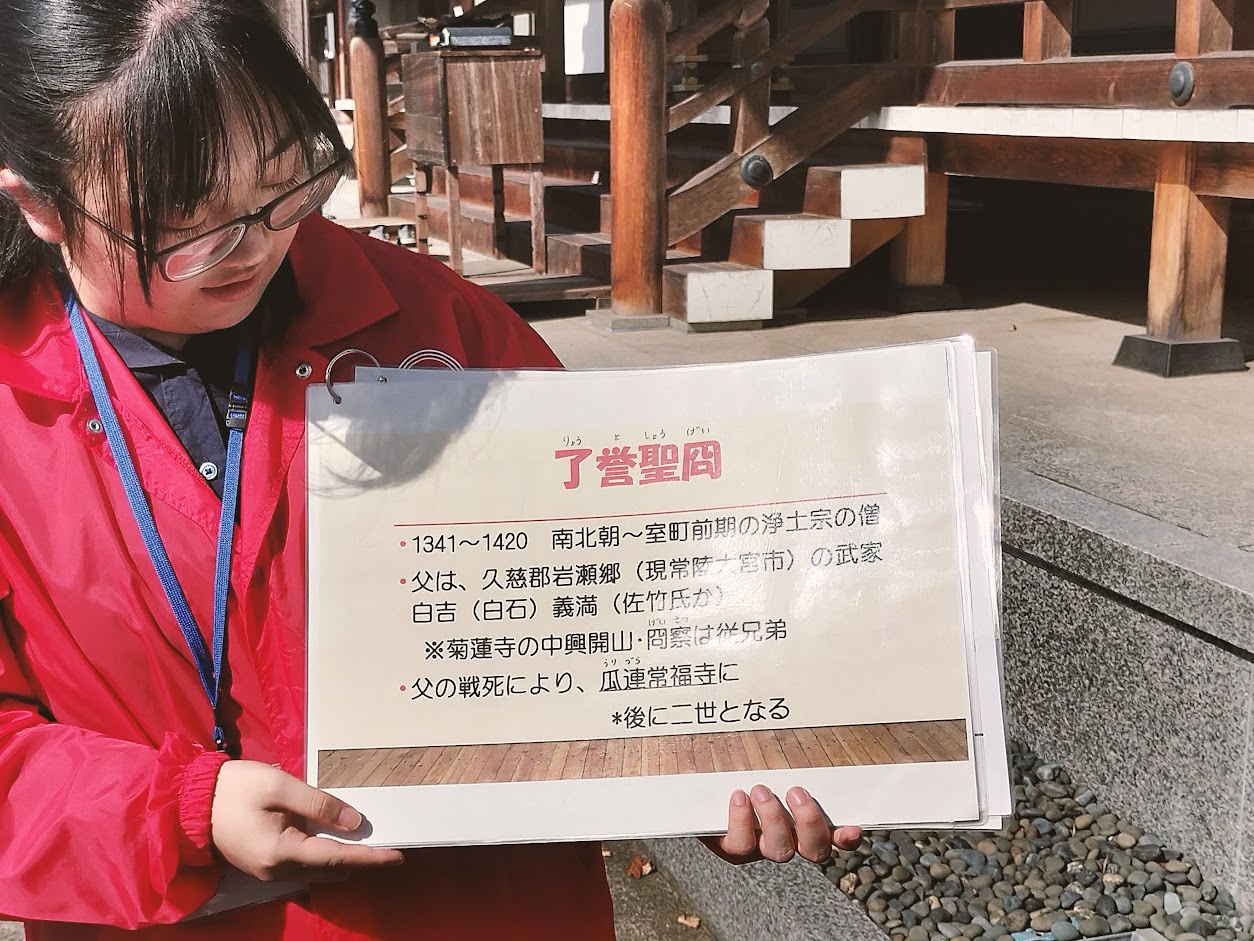 りょう よ しょう げい
了誉聖冏
・1341～1420 南北朝～室町前期の浄土宗の僧
・父は、久慈郡岩瀬郷（現常陸大宮市）の武家
白吉（白石）義満（佐竹氏か）
げい さつ
※菊蓮寺の中興開山・冏察は従兄弟
うり づら
・父の戦死により、瓜連常福寺に
*後に二世となる